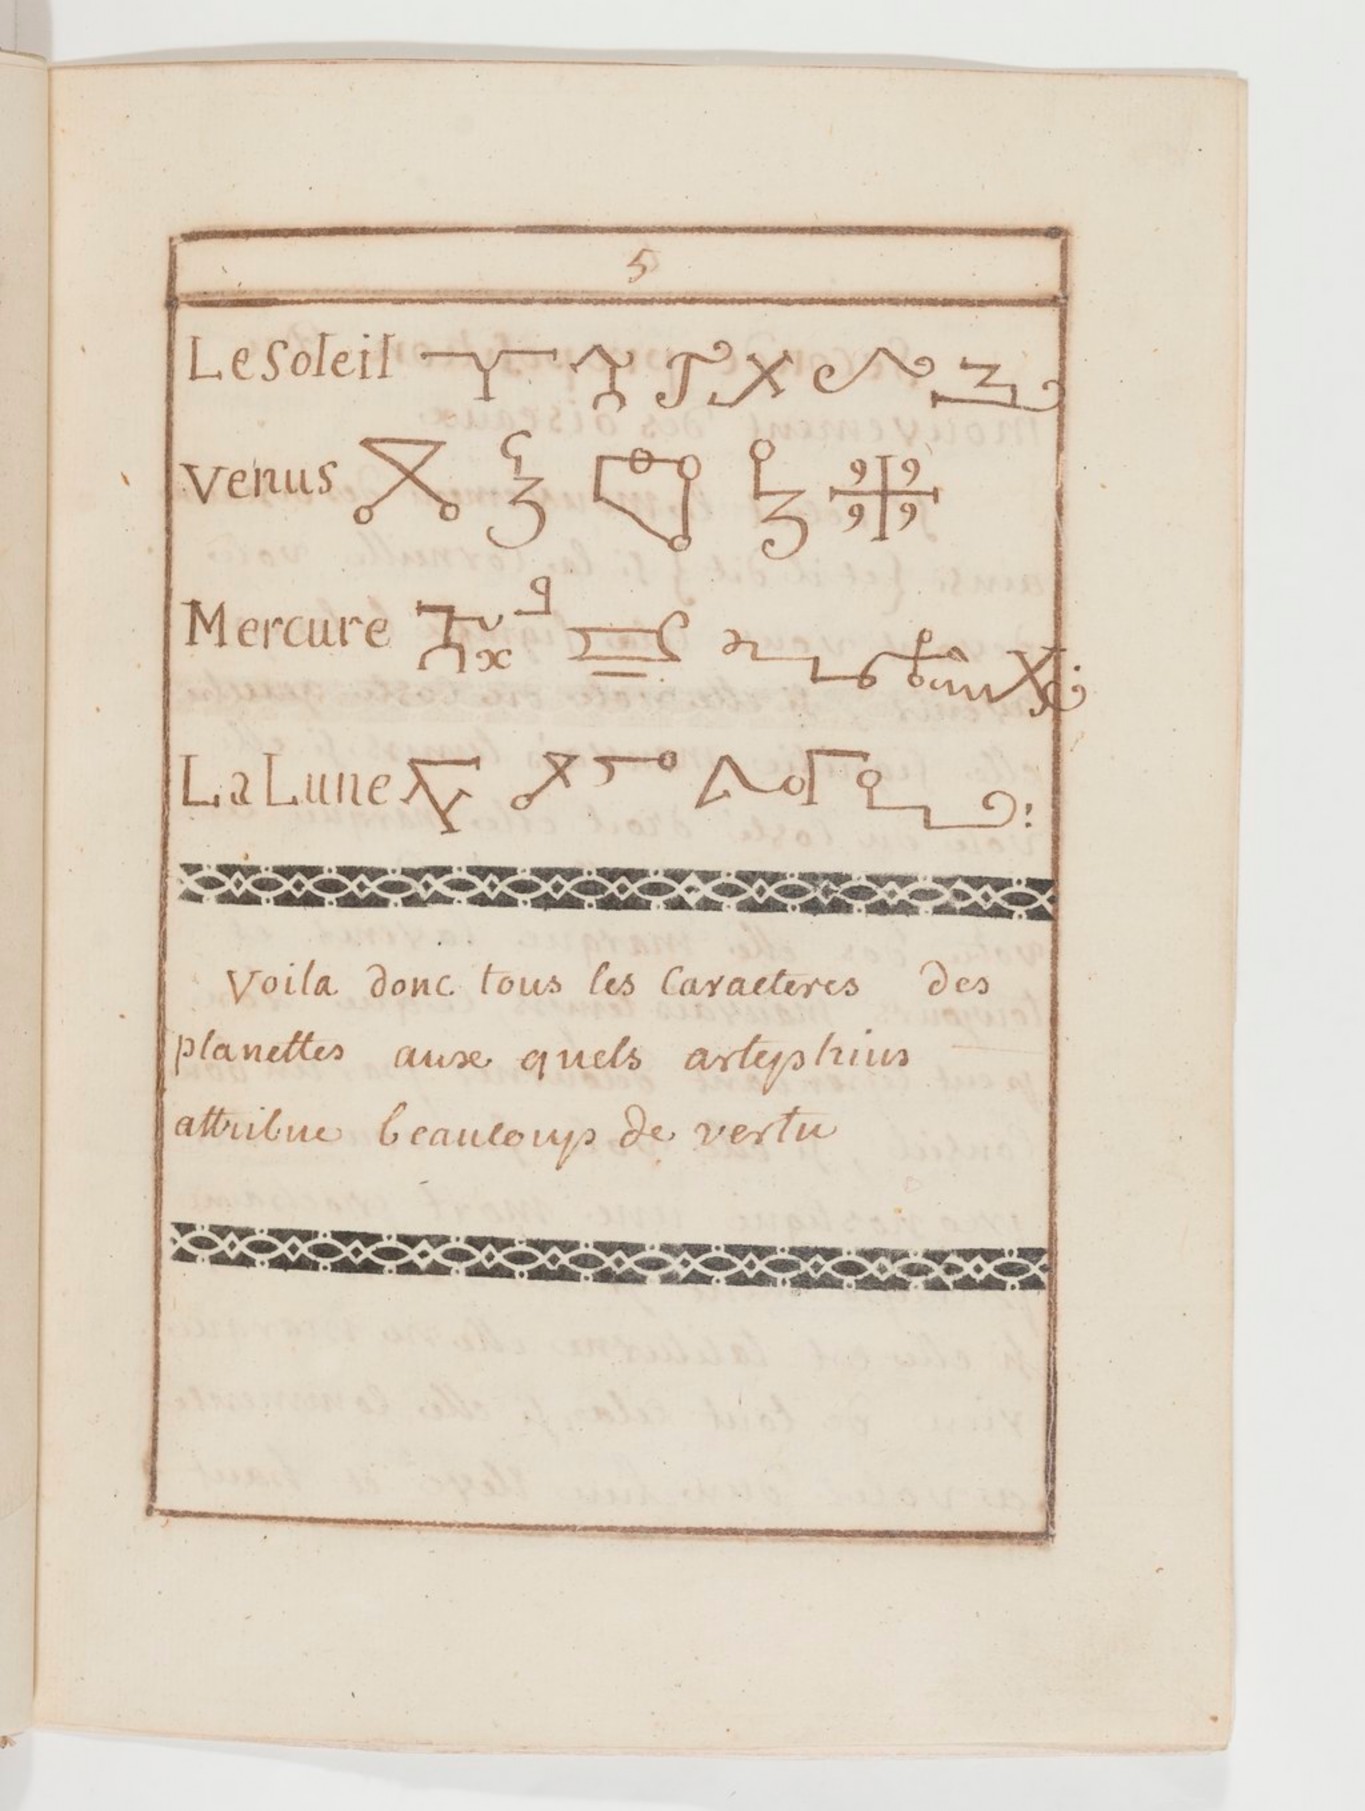 5
Le soleil
Venus
Mercure
La Lune
Voila donc tous les Caracteres des
planettes auxe quels artephius
attribue beaucoup de vertu